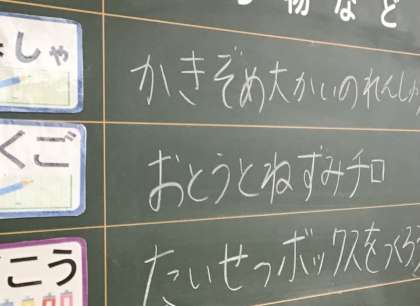 物など
しゃ
かきぞめ大かいのれんしゅ
くご
おとうとねずみチロ
こう
たいせつボックスをつくろう